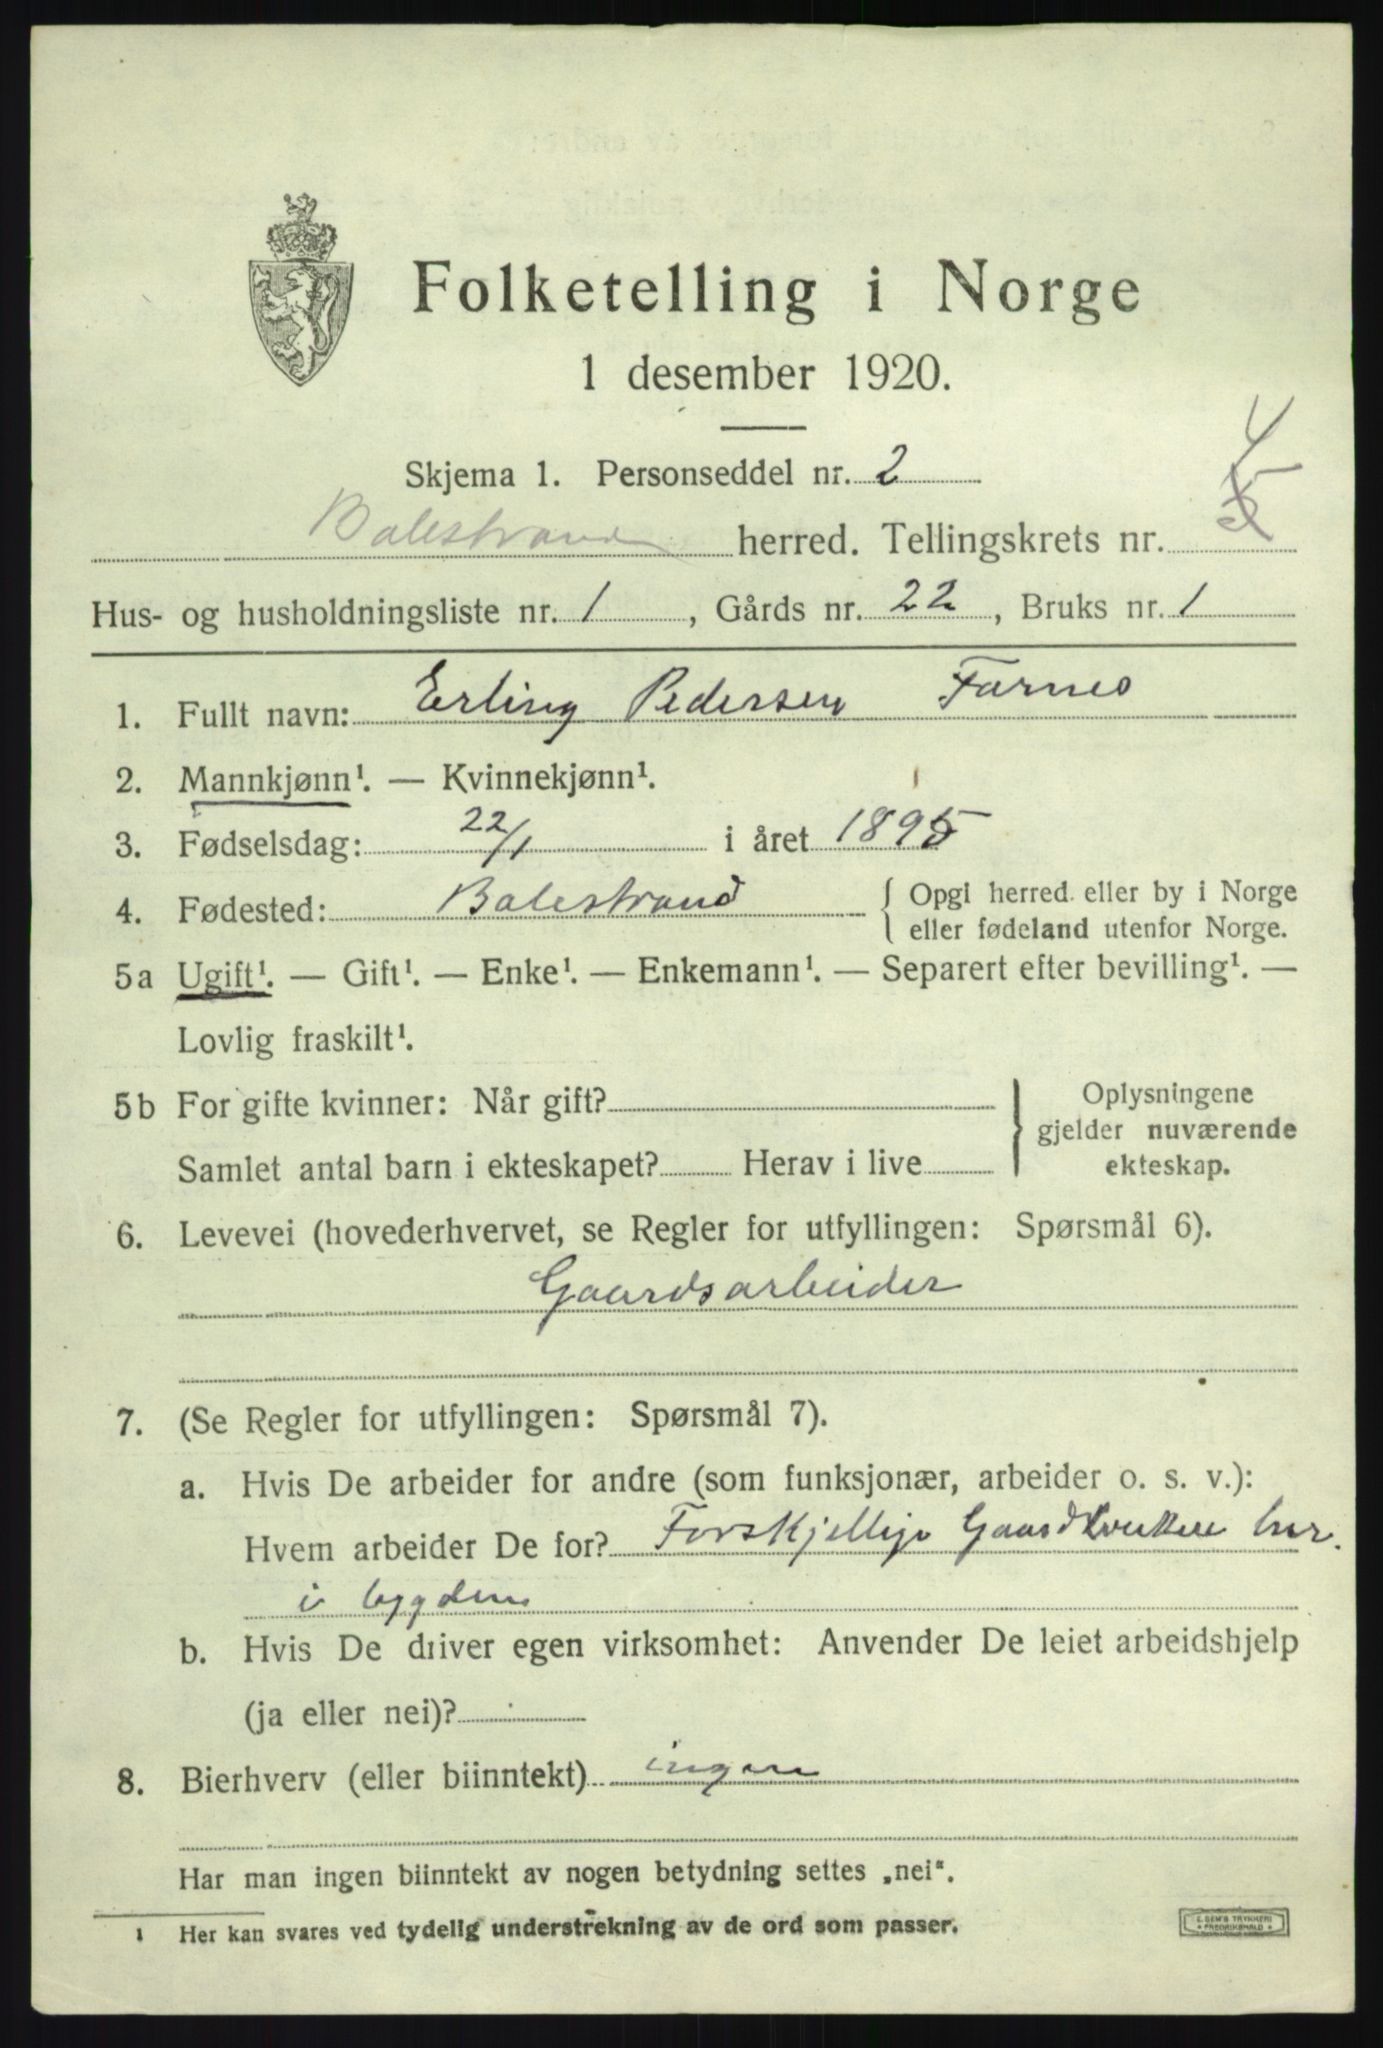 Folketelling i Norge
1 desember 1920.
Skjema 1. Personseddel nr. 2
Balestrand herred. Tellingskrets nr. 4
Hus- og husholdningsliste nr. 1, Gårds nr. 22, Bruks nr. 1
1. Fullt navn: Erling Pedersen Farnes
2. Mannkjønn¹. — Kvinnekjønn¹.
3. Fødselsdag: 22/1 i året 1895
4. Fødested: Balestrand { Opgi herred eller by i Norge
eller fødeland utenfor Norge.
5a Ugift¹. — Gift¹. — Enke¹. — Enkemann¹. — Separert efter bevilling¹. —
Lovlig fraskilt¹.
5b For gifte kvinner: Når gift? } Oplysningene
gjelder nuværende
Samlet antal barn i ekteskapet? Herav i live ekteskap.
6. Levevei (hovederhvervet, se Regler for utfyllingen: Spørsmål 6).
Gaardsarbeider
7. (Se Regler for utfyllingen: Spørsmål 7).
a. Hvis De arbeider for andre (som funksjonær, arbeider o. s. v.):
Hvem arbeider De for? Forskjellige Gaardbrukere her
i bygden
b. Hvis De driver egen virksomhet: Anvender De leiet arbeidshjelp
(ja eller nei)?
8. Bierhverv (eller biinntekt) ingen
Har man ingen biinntekt av nogen betydning settes „nei“.
1 Her kan svares ved tydelig understrekning av de ord som passer.
E. SEM'S TRYKKERI
FREDRIKSHALD